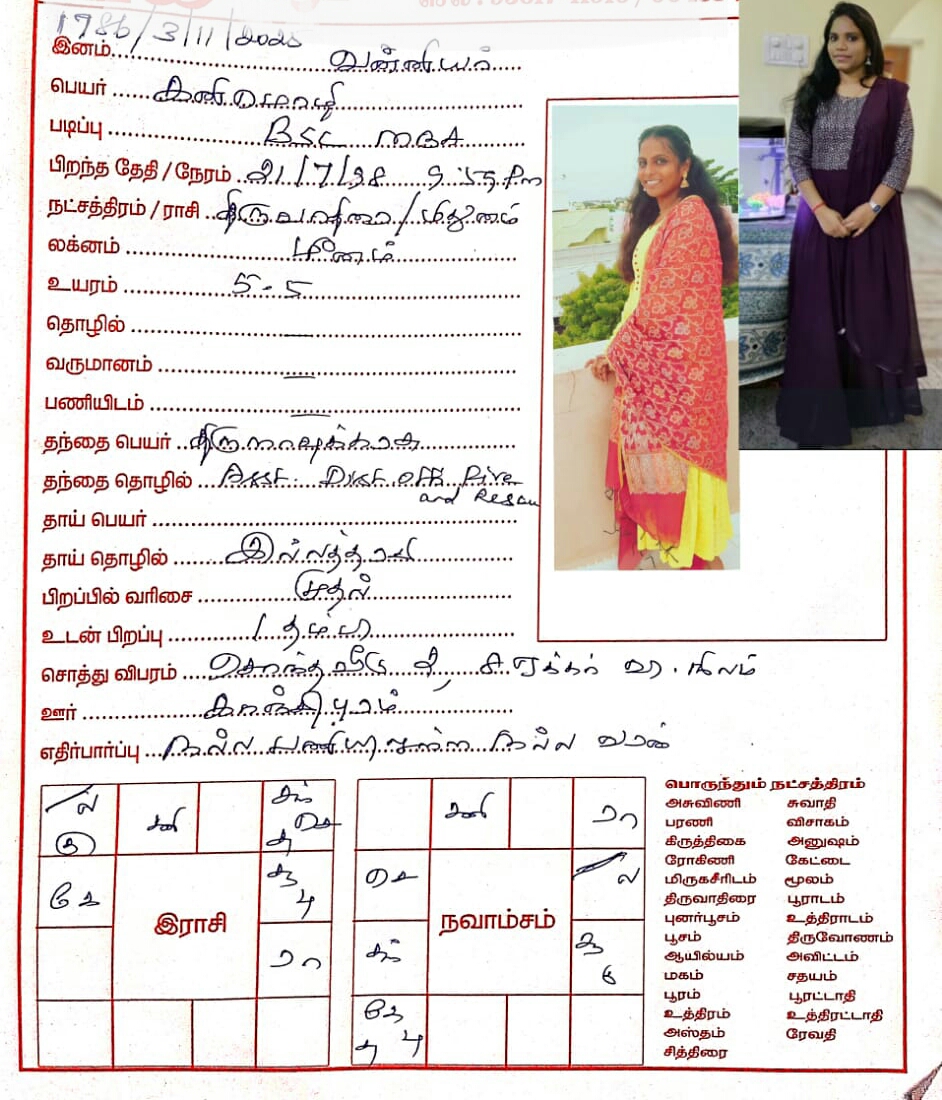 1986/3/11/2025
இனம் வன்னியர்
பெயர் கனிமொழி
படிப்பு BSC MBA
பிறந்த தேதி / நேரம் 21/7/98 9.55.Pm
நட்சத்திரம் / ராசி திருவாதிரை/மிதுனம்
லக்னம் மீனம்
உயரம் 5-5
தொழில் —
வருமானம் —
பணியிடம் —
தந்தை பெயர்
தந்தை தொழில் Asst. Dist. off. Fire
and Rescu
தாய் பெயர்
தாய் தொழில் இல்லத்தரசி
பிறப்பில் வரிசை முதல்
உடன் பிறப்பு 1 தம்பி
சொத்து விபரம் சொந்த வீடு ஏக்கர் நிலம்
ஊர் காஞ்சிபுரம்
எதிர்பார்ப்பு நல்ல பணியுள்ள நல்ல வரன்
ல
கு
சனி
சந்
செ
சு
கே
சூ
பு
ரா
இராசி
சனி
ரா
செ
ல
சுக்
சூ
கு
கே
பு
நவாம்சம்
பொருந்தும் நட்சத்திரம்
அசுவிணி சுவாதி
பரணி விசாகம்
கிருத்திகை அனுஷம்
ரோகிணி கேட்டை
மிருகசீரிடம் மூலம்
திருவாதிரை பூராடம்
புனர்பூசம் உத்திராடம்
பூசம் திருவோணம்
ஆயில்யம் அவிட்டம்
மகம் சதயம்
பூரம் பூரட்டாதி
உத்திரம் உத்திரட்டாதி
அஸ்தம் ரேவதி
சித்திரை